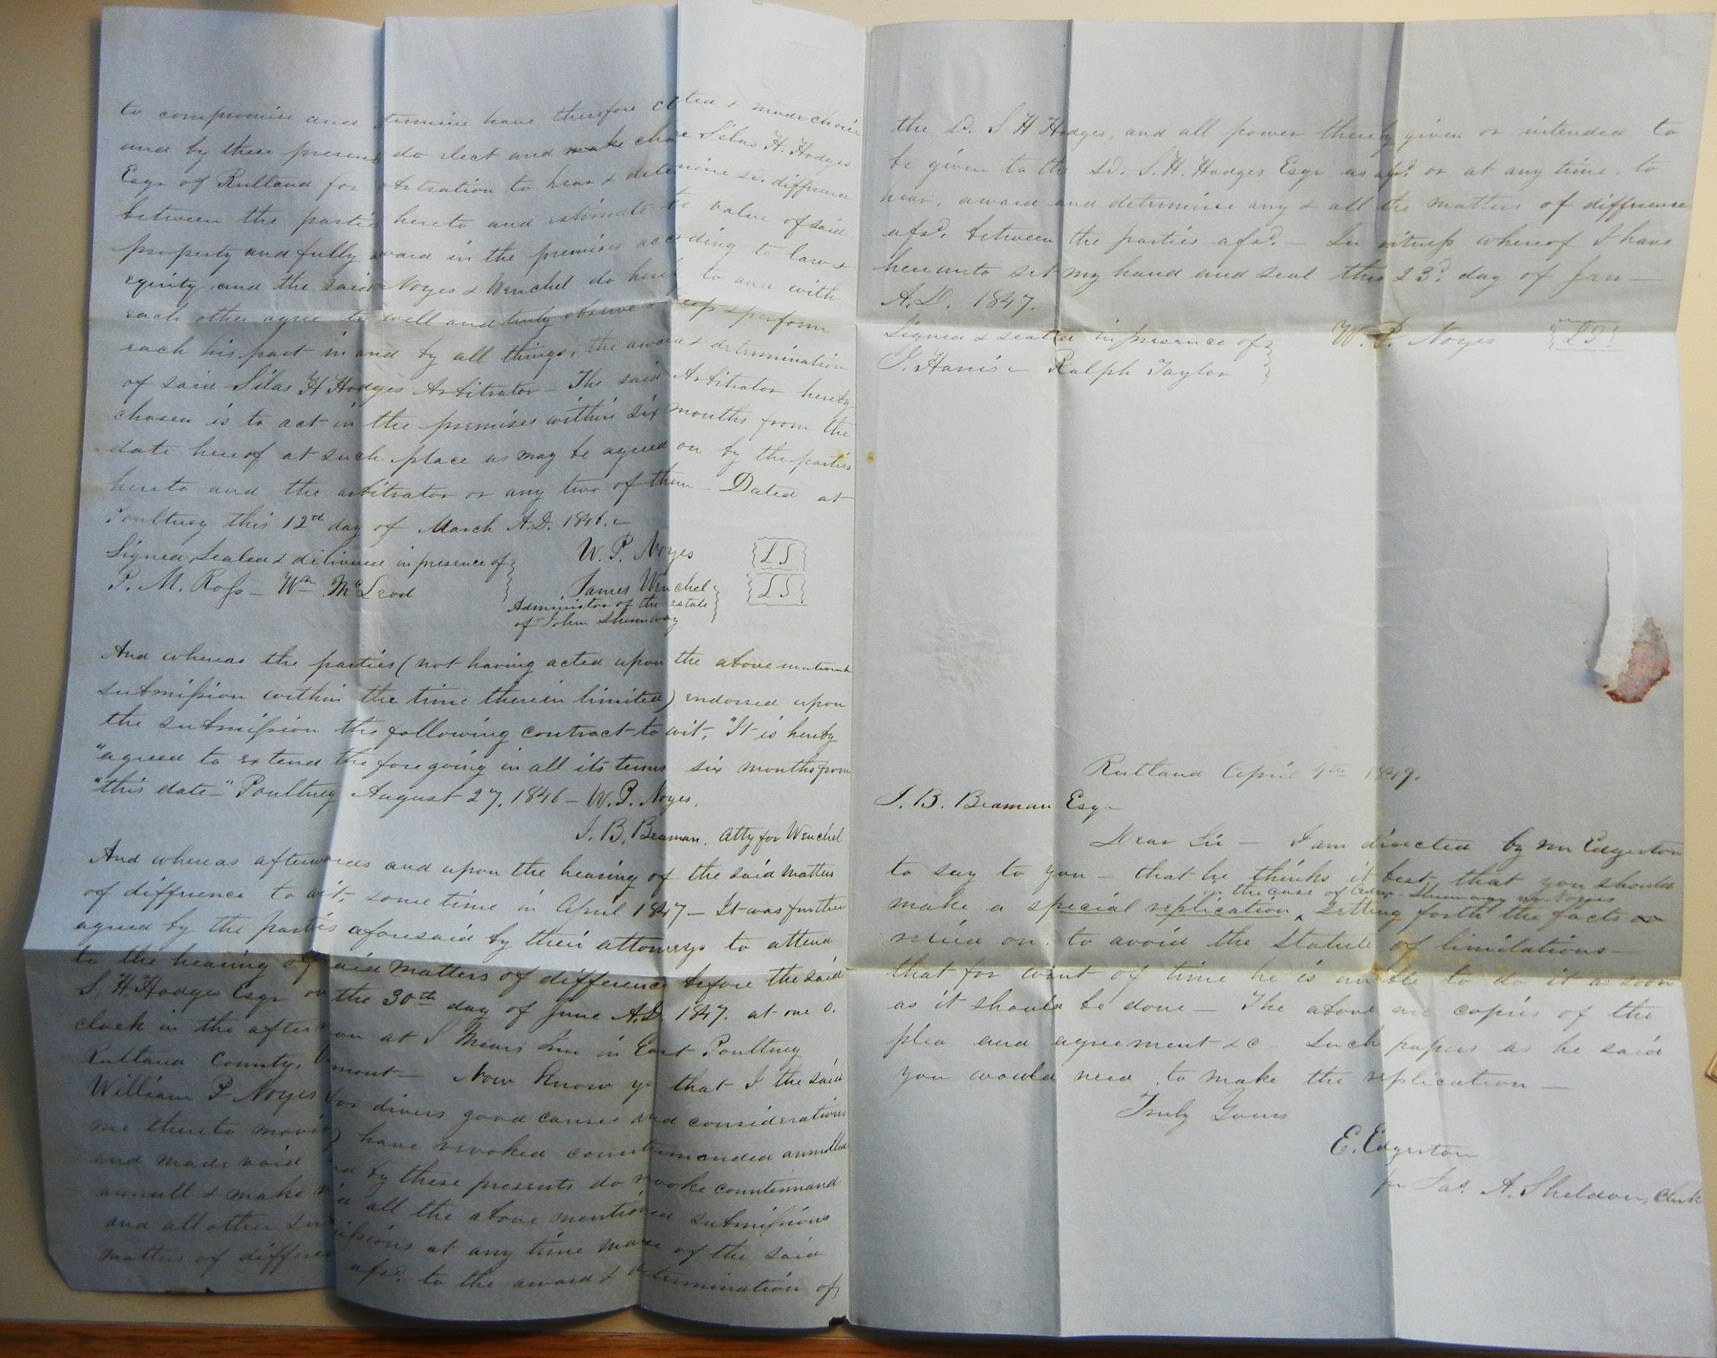 to compromise and termine have therefore cted & made choice
and by these presents do elect and make choice Silas H. Hodges
Esqr of Rutland for arbitration to hear & determine sd. difference
between the parties hereto and estimate the value of said
property and fully award in the premises according to law &
equity and the said Noyes & Winchel do hereby to and with
each other agree to well and truly observe keep & perform
each his part in and by all things, the award & determination
of said Silas H Hodges Arbitrator – The said Arbitrator hereby
chosen is to act in the premises within six months from the
date hereof at such place as may be agreed on by the parties
hereto and the arbitrator or any two of them – Dated at
Poultney this 12th day of March A.D. 1846. –
Signed, Sealed & delivered in presence of } W. P. Noyes {LS}
P. M. Ross – Wm McLeod } James Winchel } {LS}
Administor of the estate
of John Shumway
And whereas the parties (not having acted upon the above mentioned
submission within the time therein limited) endorsed upon
the submission the following contract to wit, "It is hereby
"agreed to extend the foregoing in all its terms six months from
"this date –" Poultney August 27, 1846 – W. P. Noyes.
J. B. Beaman. Atty for Winchel
And whereas afterwards and upon the hearing of the said matters
of difference to wit, some time in April 1847 – It was further
agreed by the parties aforesaid by their attorneys to attend
to the hearing of said matters of difference before the said
S. H. Hodges Esqr on the 30th day of June A.D. 1847. at one o.
clock in the afternoon at S Mears Inn in East Poultney
Rutland County, Vermont – Now Know ye that I the said
William P Noyes for divers good causes and considerations
me thereto moving have revoked countermanded annulled
and made void and by these presents do revoke countermand
annull & make void all the above mentioned submissions
and all other Submissions at any time made of the said
matters of difference afsd. to the award & determination of
the sd. S H Hodges, and all power thereby given or intended to
be given to the sd. S. H. Hodges Esqr as afsd. or at any time, to
hear, award and determine any & all the matters of difference
afsd. between the parties afsd. – In witness whereof I have
hereunto set my hand and seal this 23d. day of Jan –
A.D. 1847.
Signed & sealed in presence of } W. P. Noyes {LS}
J. Harris – Ralph Taylor }
Rutland April 4th 1849.
J. B. Beaman Esqr
Dear Sir – I am directed by Mr Edgerton
to say to you – that he thinks it best that you should
in the case of Admr. Shumway vs Noyes
make a special replication ^ setting forth the facts
relied on, to avoid the Statute of limitations –
that for want of time he is unable to do it as soon
as it should be done – The above are copies of the
plea and agreement &c – Such papers as he said
you would need to make the replication –
Truly Yours
E. Edgerton
pr Jas. A. Sheldon, Clerk